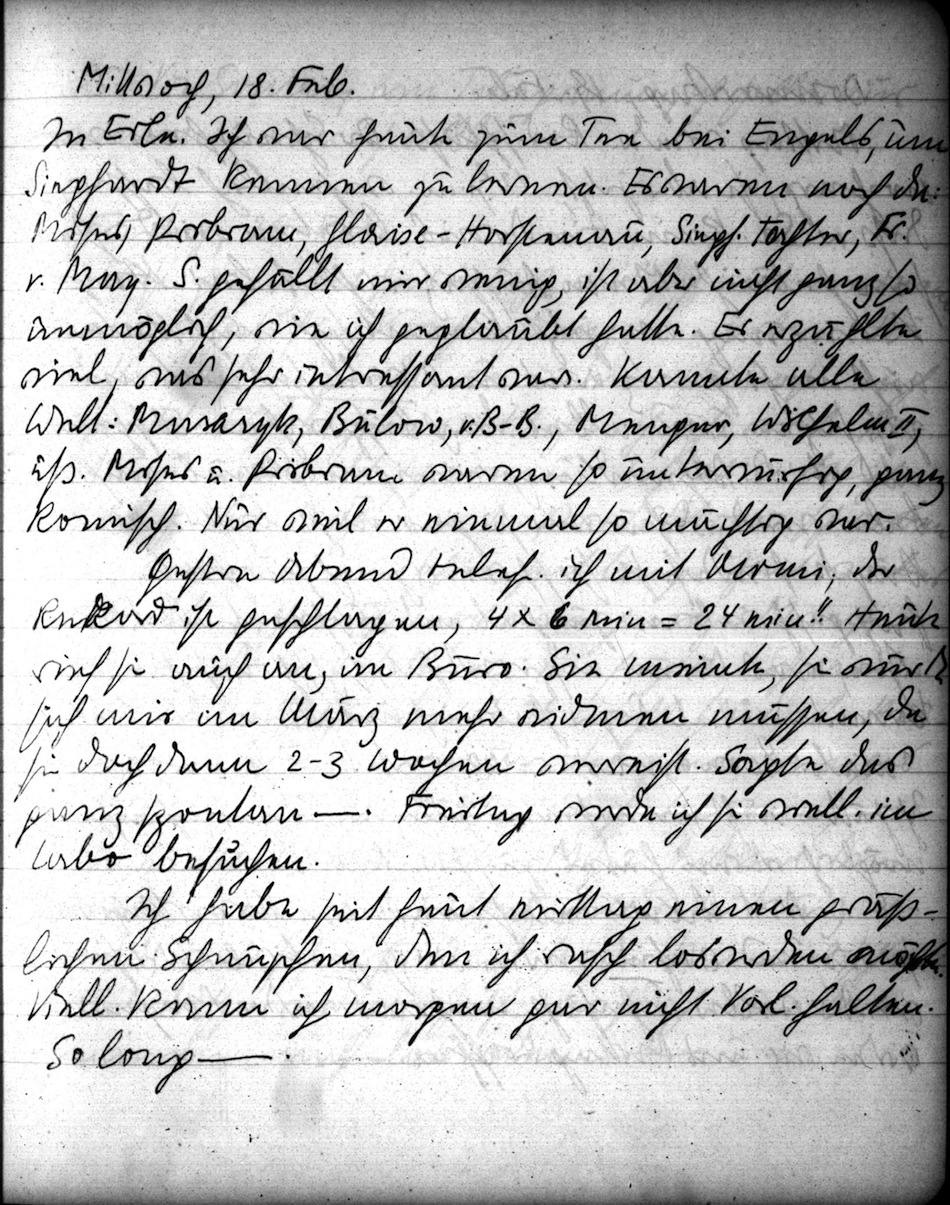 Mittwoch, 18. Feb.
In Eile. Ich war heute zum Tee bei Engels, um
Sieghardt kennen zu lernen. Es waren noch da:
Moses, Pribram, Glaise-Horstenau, Siegh. Tochter, Fr.
v. May. S. gefällt mir wenig, ist aber nicht ganz so
unmöglich, wie ich geglaubt hatte. Er erzählte
viel, was sehr interessant war. Kannte alle
Welt: Masaryk, Bülow, v. B-B., Menger, Wilhelm II,
usf. Moses u. Pribram waren so unterwürfig, ganz
komisch. Nur weil er einmal so mächtig war.
Gestern Abend telef. ich mit Mimi, der
Rekord ist geschlagen, 4 x 6 min = 24 min!! Heute
rief sie auch an, im Büro. Sie meinte, sie würde
sich mir im März mehr widmen müssen, da
sie doch dann 2-3 Wochen verreist. Sagte das
ganz spontan —. Freitag werde ich sie viell. im
Labor besuchen.
Ich habe seit heut mittag einen gräß-
lichen Schnupfen, den ich rasch loswerden möchte.
Viell. kann ich morgen gar nicht Vorl. halten.
So long —.